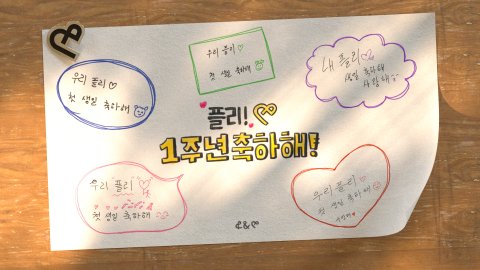 우리 플리♡
첫 생일 축하해
우리 플리♡
첫 생일 축하해
내 플리♡
생일 축하해
사랑해
플리!
1주년 축하해!
우리 플리
첫 생일 축하해
우리 플리♡
첫 생일 축하해